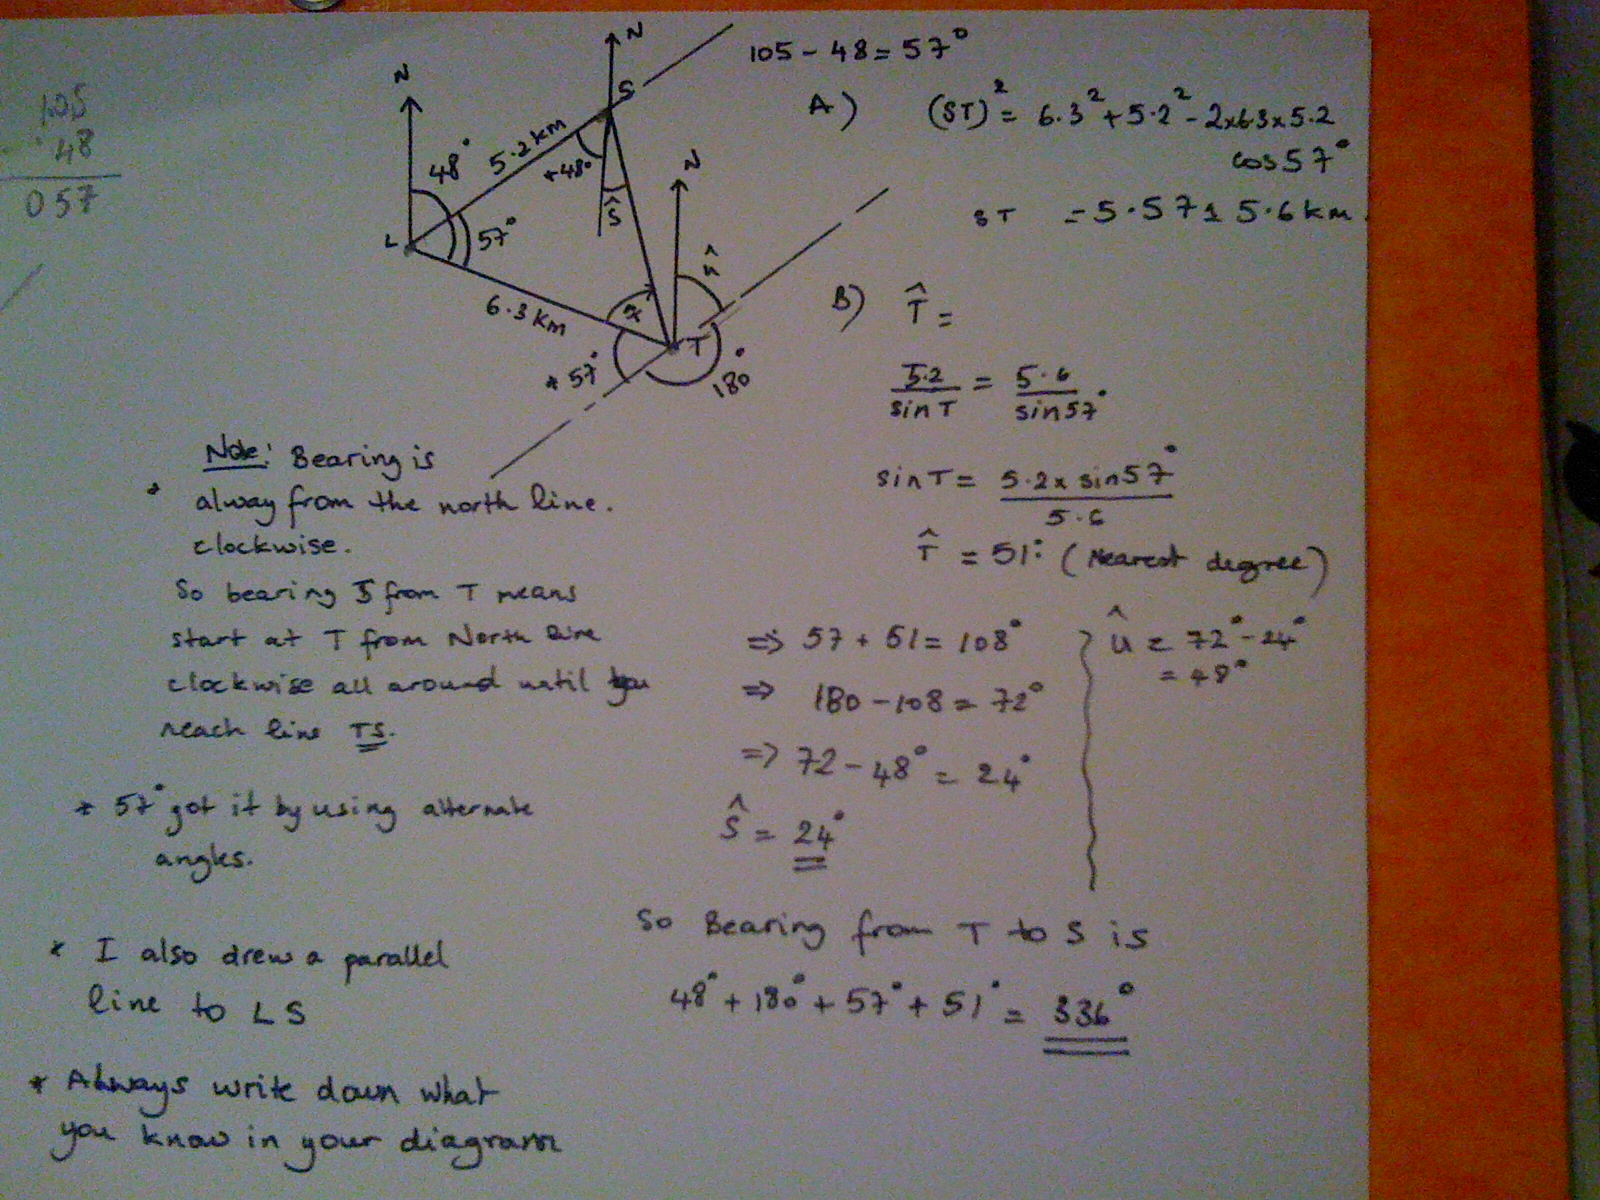 105
48
057
N
N
S
48°
5.2 km
*48°
Ŝ
N
L
57°
6.3 km
x
û
T
*57°
180°
105 - 48 = 57°
A) (ST)² = 6.3² + 5.2² - 2x6.3x5.2
cos57°
ST = 5.57 ± 5.6 km.
B) T̂ =
5.2/sinT = 5.6/sin57°
sinT = 5.2 x sin57°/5.6
T̂ = 51° (Nearest degree)
⇒ 57 + 51 = 108°
⇒ 180 - 108 = 72°
⇒ 72 - 48° = 24°
Ŝ = 24°
û = 72° - 24°
= 48°
So Bearing from T to S is
48° + 180° + 57° + 51° = 336°
Note: Bearing is
alway from the north line.
clockwise.
So bearing S from T means
start at T from North line
clockwise all around until you
reach line TS.
* 57° got it by using alternate
angles.
* I also drew a parallel
line to LS
* Always write down what
you know in your diagram